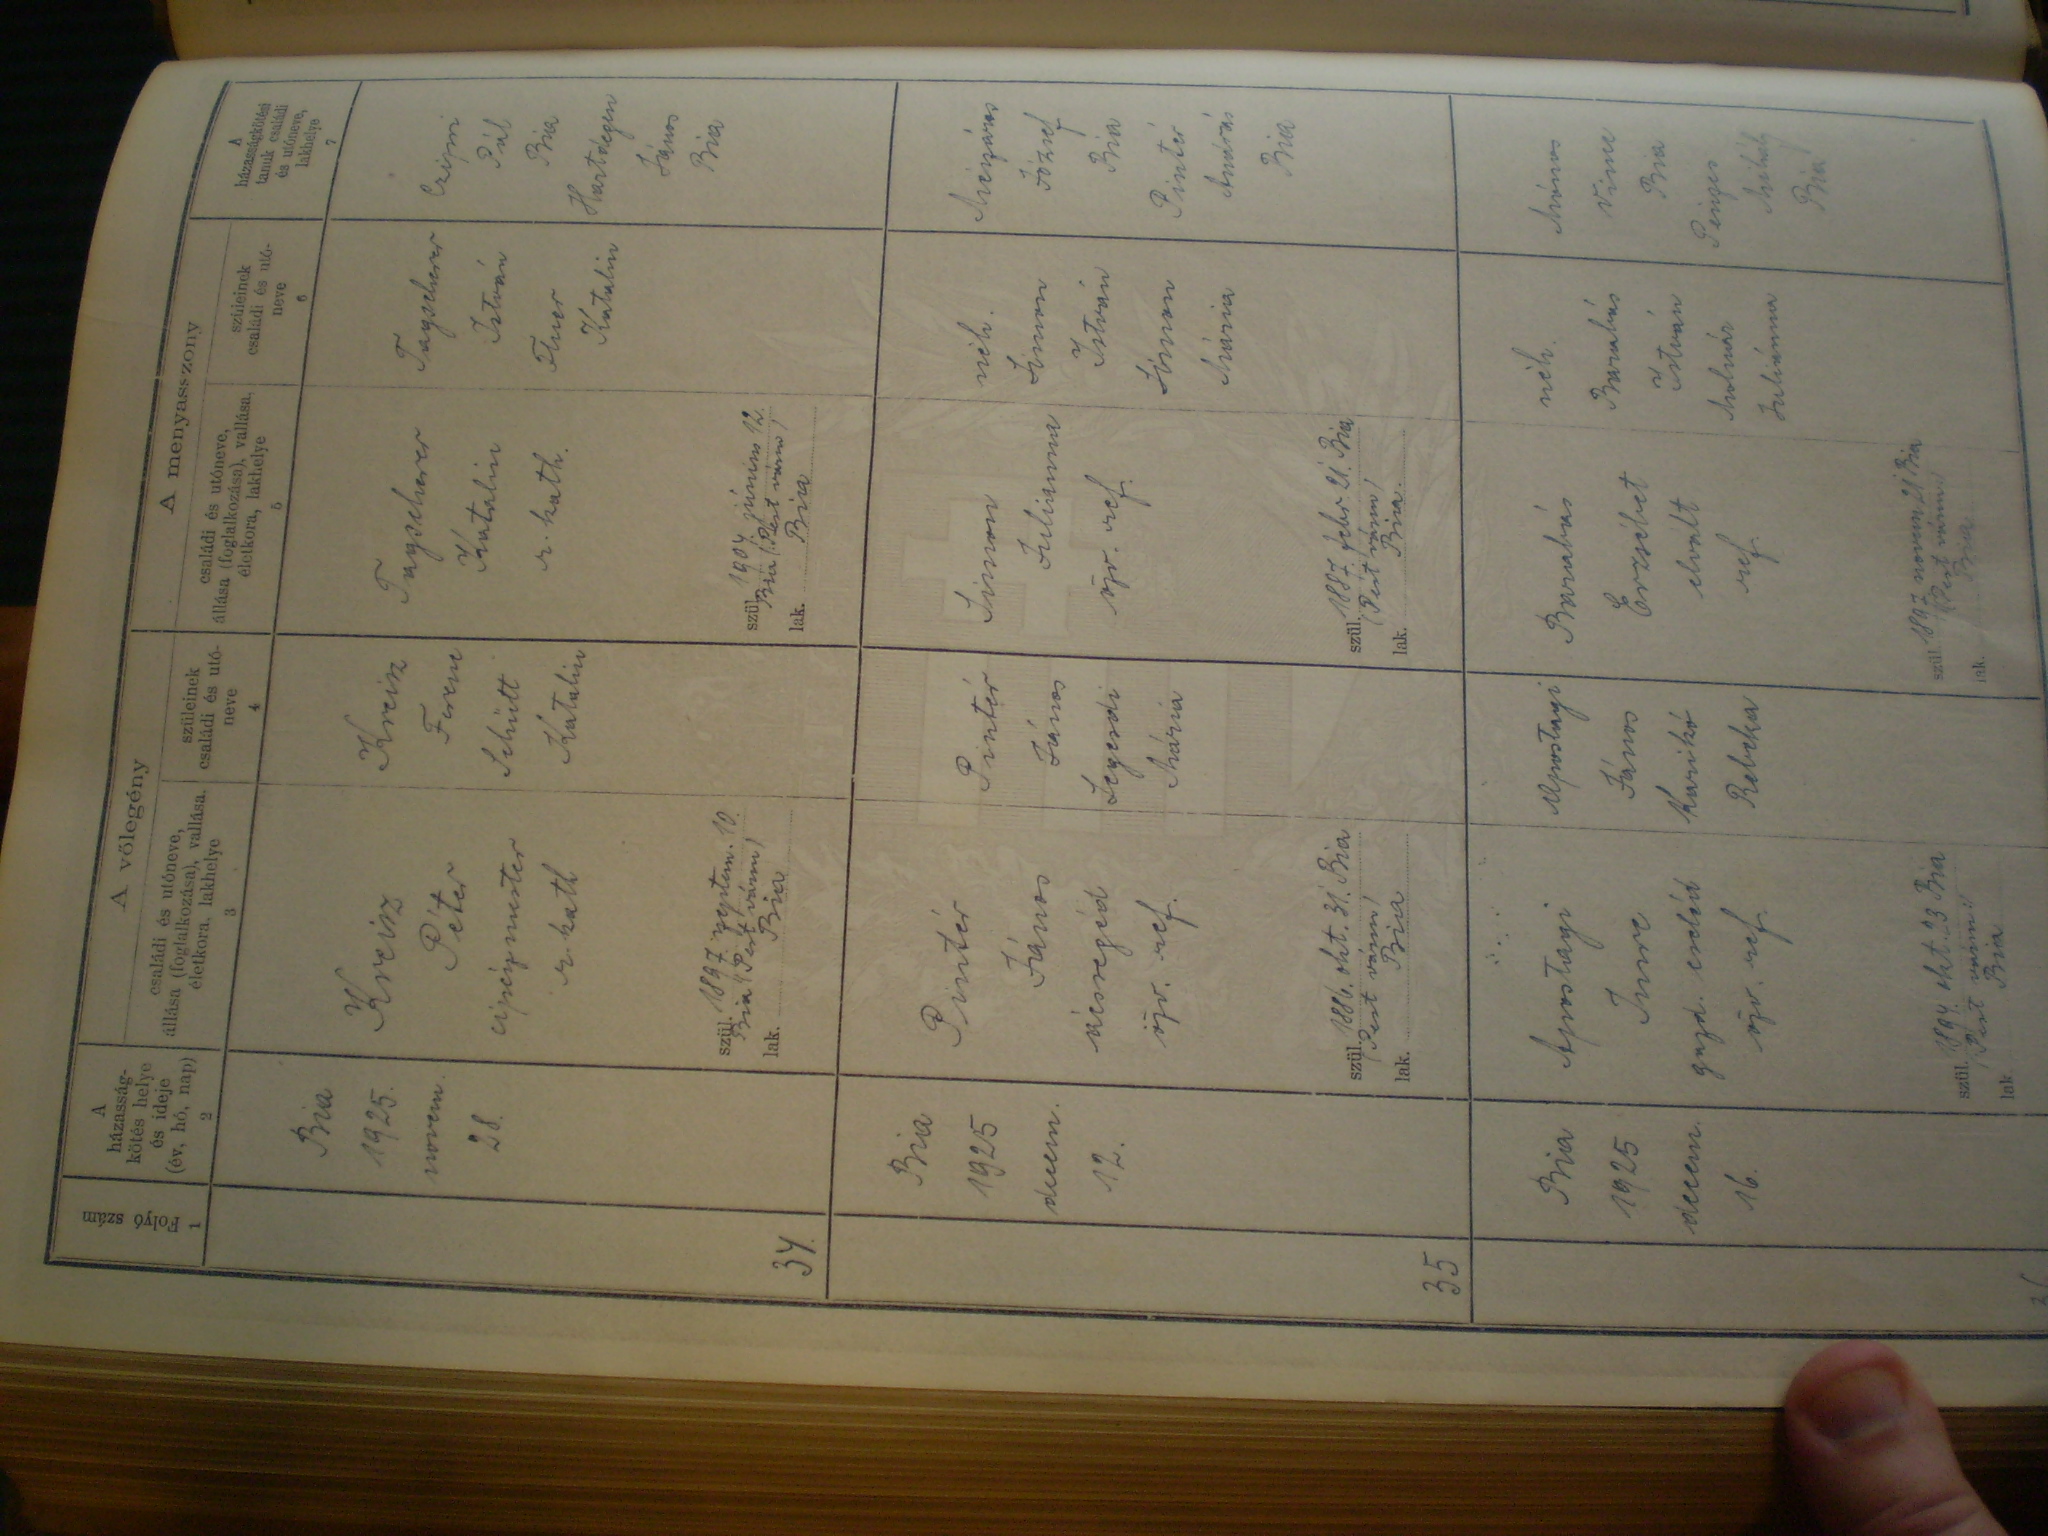 Folyó szám
1
A
házasság-
kötés helye
és ideje
(év, hó, nap)
2
A vőlegény
családi és utóneve,
állása (foglalkozása), vallása,
életkora, lakhelye
3
szüleinek
családi és utó-
neve
4
A menyasszony
családi és utóneve,
állása (foglalkozása), vallása,
életkora, lakhelye
5
szüleinek
családi és utó-
neve
6
A
házasságkötési
tanuk családi
és utóneve,
lakhelye
7
34.
Bia
1925.
novem.
28.
Kreisz
Péter
cipészmester
r. kath
szül. 1897 szeptem. 10.
Bia (Pest várm)
lak. Bia
Kreisz
Ferenc
Schütt
Katalin
Tagscherer
Katalin
r. kath.
szül. 1904 június 12.
Bia (Pest várm)
lak. Bia
Tagscherer
István
Katalin
Czipri
Pál
Bia
Hartdégen
János
Bia
35
Bia
1925
decem.
12.
Pintér
János
ácssegéd
özv. ref.
szül. 1886. okt. 31. Bia
(Pest várm)
lak. Bia
Pintér
János
Szegedi
Mária
Simon
Julianna
özv. ref.
szül. 1887. febr 21. Bia
(Pest várm)
lak. Bia.
néh.
Simon
István
Simon
Mária
Mészáros
József
Bia
Pintér
András
Bia
Bia
1925
decem.
16.
Apostagi
Imre
gazd. cseléd
özv. ref.
szül. 1894 okt. 23 Bia
(Pest várm)
lak Bia
Apostagi
János
Karikó
Rebeka
Barabás
Erzsébet
elvált
ref.
szül. 1897 novem 21 Bia
(Pest várm)
lak. Bia
néh.
Barabás
István
Molnár
Julianna
Vince
Bia
Pénzes
Mihály
Bia